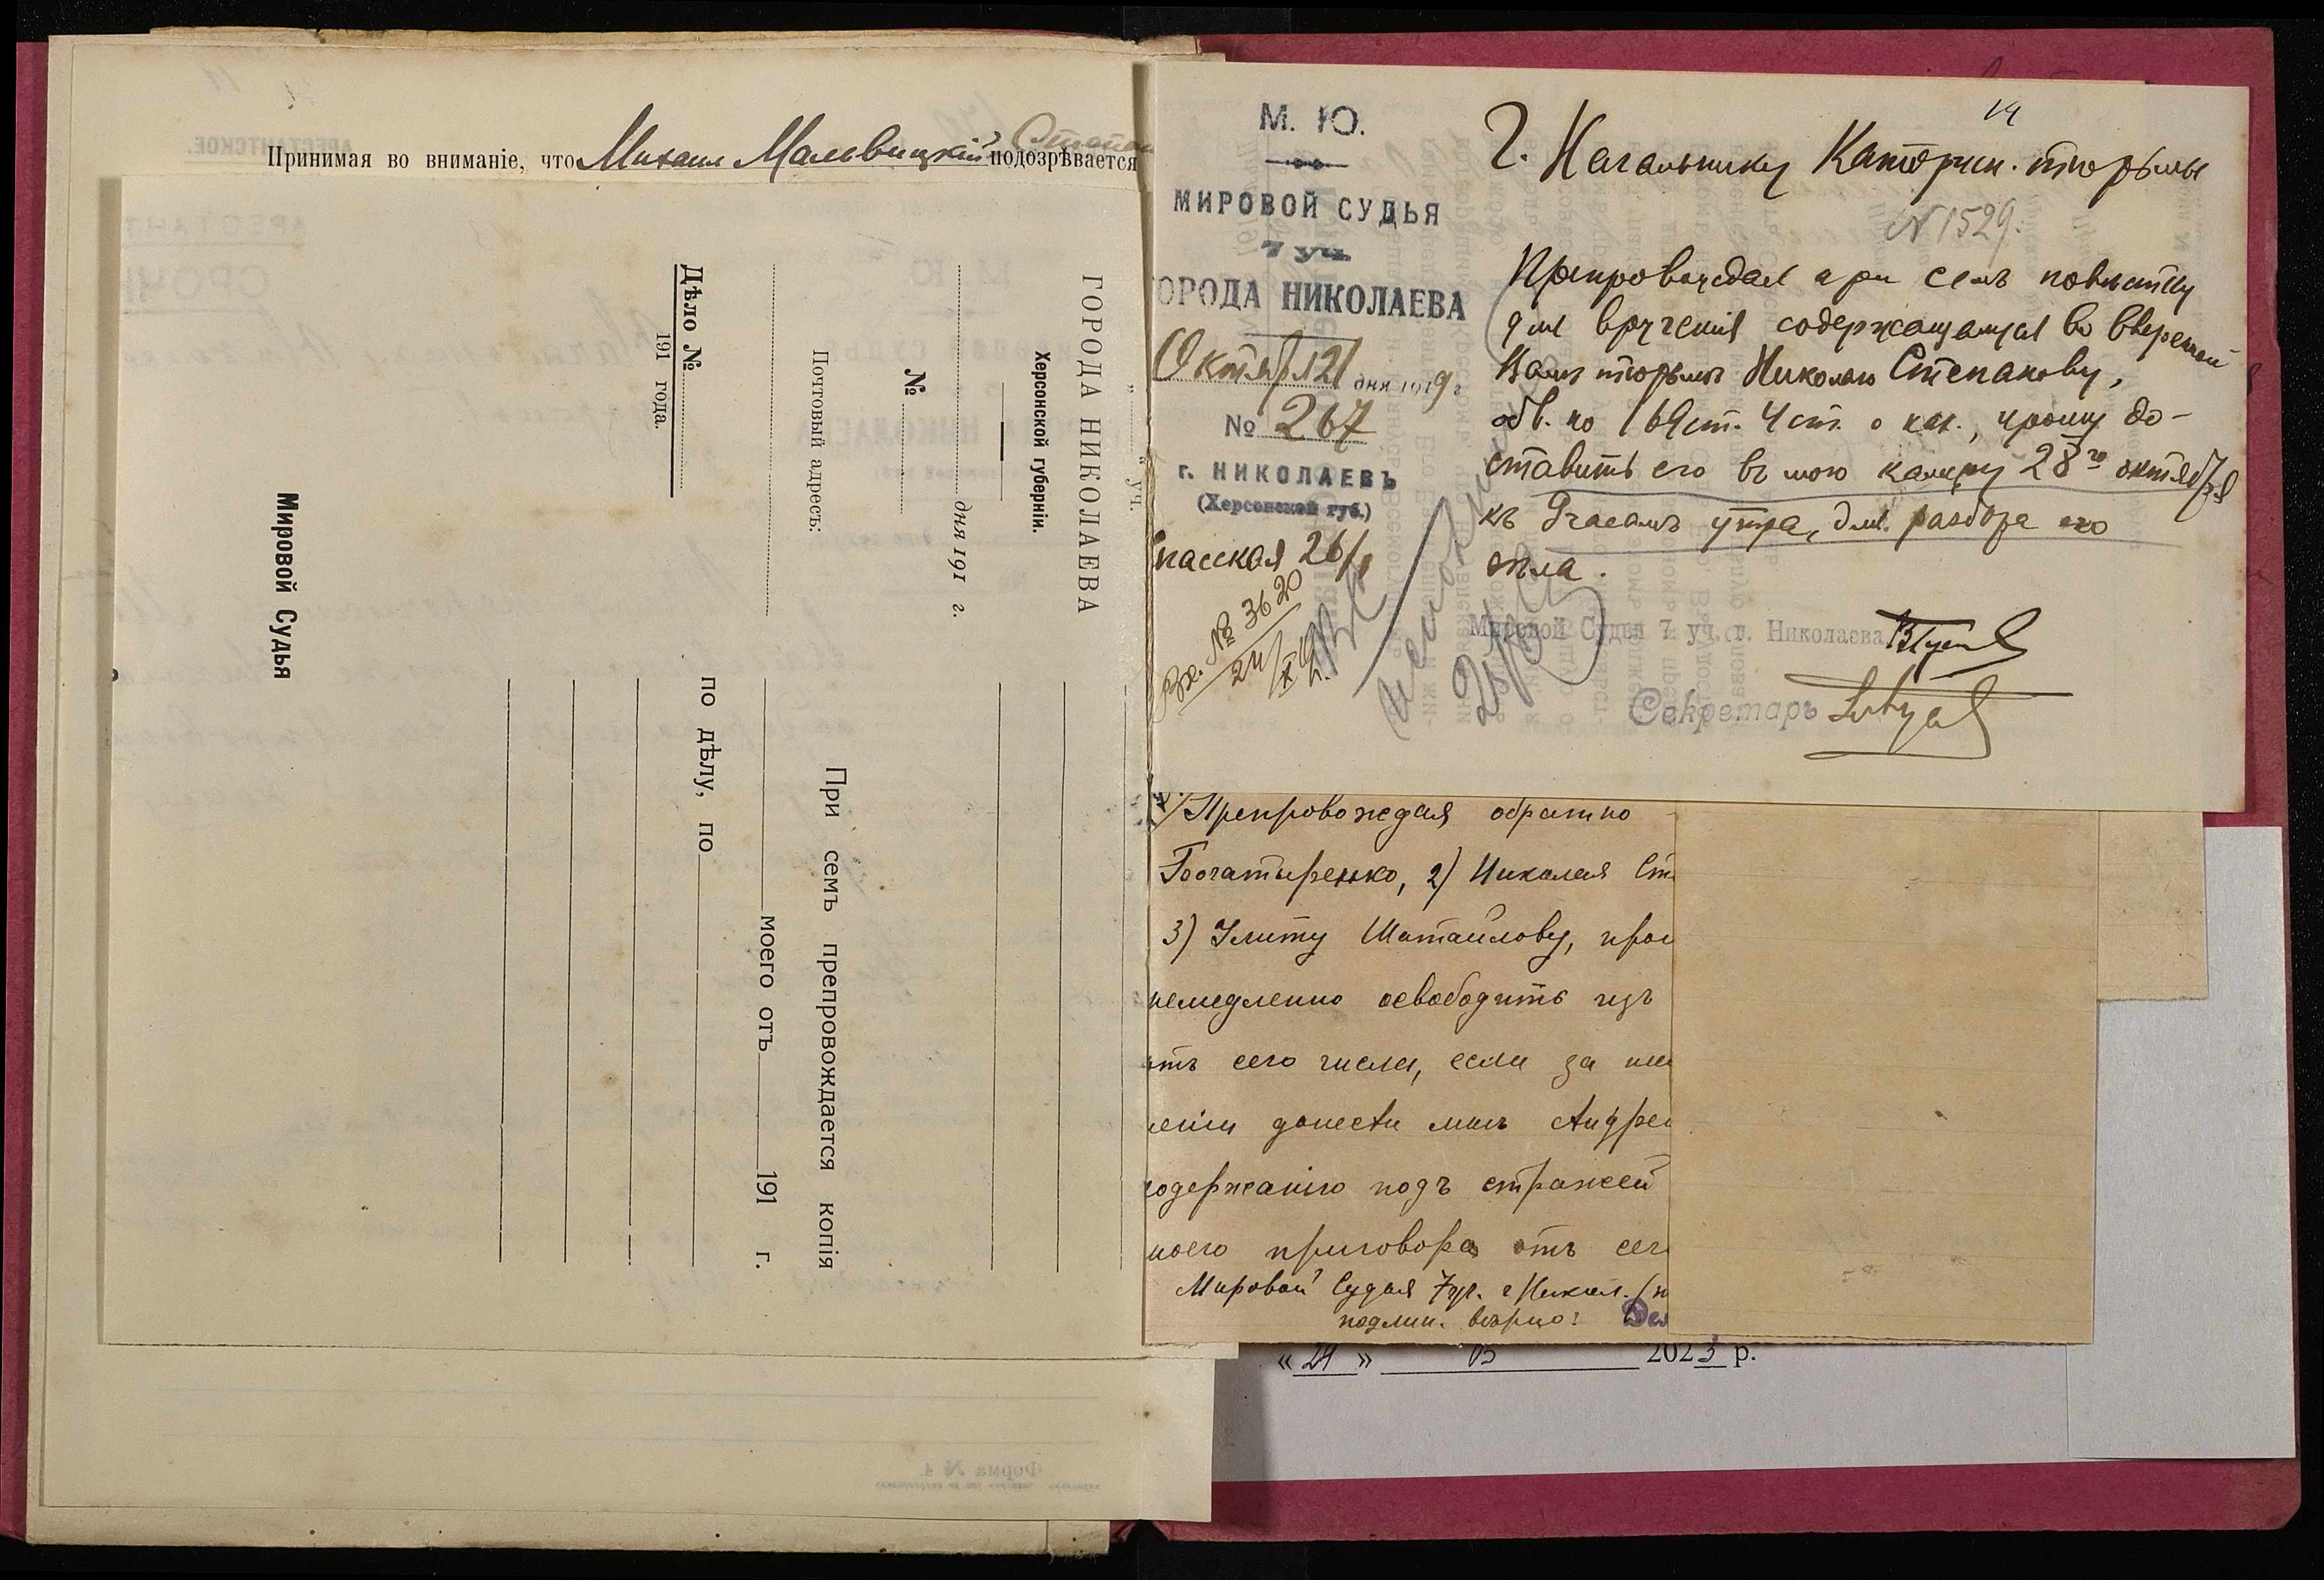 Принимая во вниманіе, что Михаил Мальвицкій подозрѣвается
ГОРОДА НИКОЛАЕВА
Херсонской губерніи.
дня 191 г.
№
Почтовый адресъ:
Дѣло №
191 года.
Мировой Судья
уч.
При семъ препровождается копія
моего отъ 191 г.
по дѣлу, по
14
М. Ю.
МИРОВОЙ СУДЬЯ
7 уч.
ОРОДА НИКОЛАЕВА
Октября 21 дня 1919 г
№ 267
г. НИКОЛАЕВЪ
(Херсонской губ.)
пасская 26/
Вх. № 3620
24/X
Г. Начальнику Каторжн. тюрьмы
№ 1529.
Препровождая при семъ повѣстку
для врученія содержащемуся во ввѣренной
Вамъ тюрьмѣ Николаю Степанову,
обв. по 169 ст. Уст. о нак., прошу до-
ставить его въ мою камеру 28го октября
къ 9 часамъ утра, для разбора его
дѣла.
Мировой Судья 7 уч. г. Николаева
Секретарь
Препровождая обратно
Богатыренко, 2) Николая Ст
3) Улиту Шатайлову, прош
немедленно освободить изъ
отъ сего числа, если за ни
неніи донести мнѣ Андре
содержанію подъ стражей
моего приговора отъ сего
Мировой Судья 7 уч. г. Никол. (п
подлин. вѣрно:
« 24 » 05 2023 р.
Форма № 4